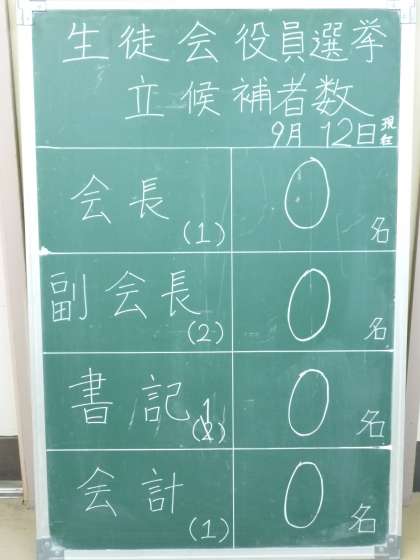 生徒会役員選挙
立候補者数
9月12日現在
会長(1) 0名
副会長(2) 0名
書記(2) 0名
会計(1) 0名